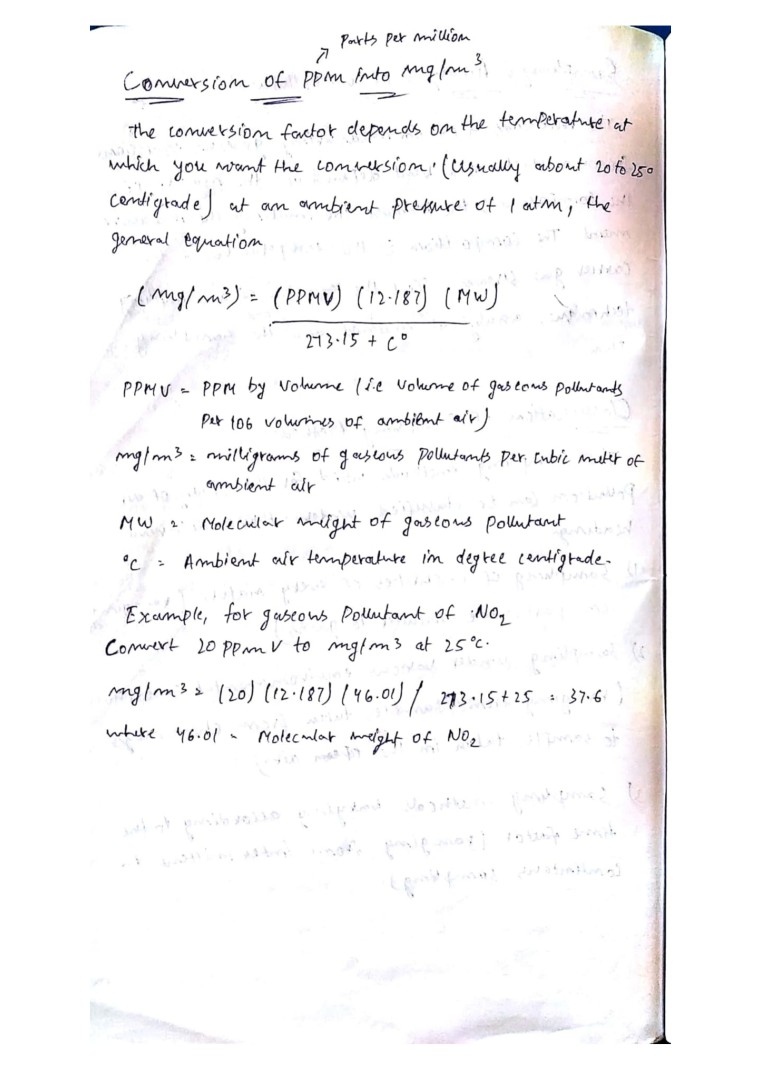 Parts per million
Conversion of PPM into mg/m³
The conversion factor depends on the temperature at
which you want the conversion. (Usually about 20 to 25°
Centigrade) at an ambient pressure of 1 atm, the
general equation
(mg/m³) = (PPMV) (12.187) (MW)
273.15 + C°
PPMV = PPM by Volume (i.e Volume of gaseous pollutants
Per 106 volumes of ambient air)
mg/m³ = milligrams of gaseous pollutants per cubic meter of
ambient air
MW = Molecular weight of gaseous pollutant
°C = Ambient air temperature in degree centigrade.
Example, for gaseous Pollutant of NO₂
Convert 20 ppmV to mg/m3 at 25°C.
mg/m3 = (20) (12.187) (46.01) / 273.15+25 = 37.6
where 46.01 = Molecular weight of NO₂